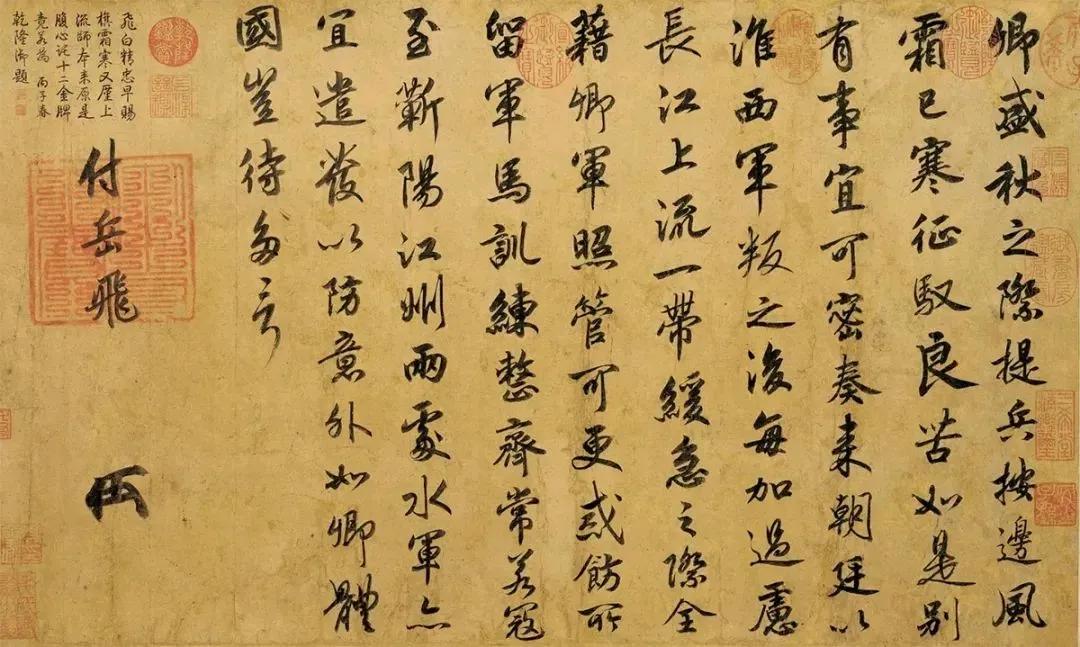 卿盛秋之際提兵按邊風
霜已寒征馭良苦如是別
有事宜可密奏來朝廷以
淮西軍叛之後每加過慮
長江上流一帶緩急之際全
藉卿軍照管可更戒飭所
留軍馬訓練整齊常若寇
至蘄陽江州兩處水軍亦
宜遣發以防意外如卿體
國豈待多言
付岳飛
飛白精忠早賜
樵霜寒又歷上
流師本來原是
腹心託十二金牌
竟若為 丙子春
乾隆御題